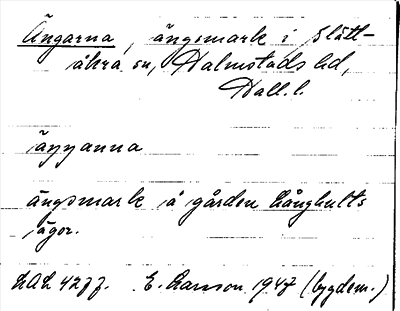 Ängarna, ängsmark i Slätt-
åkra sn, Halmstads hd,
Hall. l.
ängsmark å gården Långhults
ägor.
E. Larsson 1947 (bygdem.)